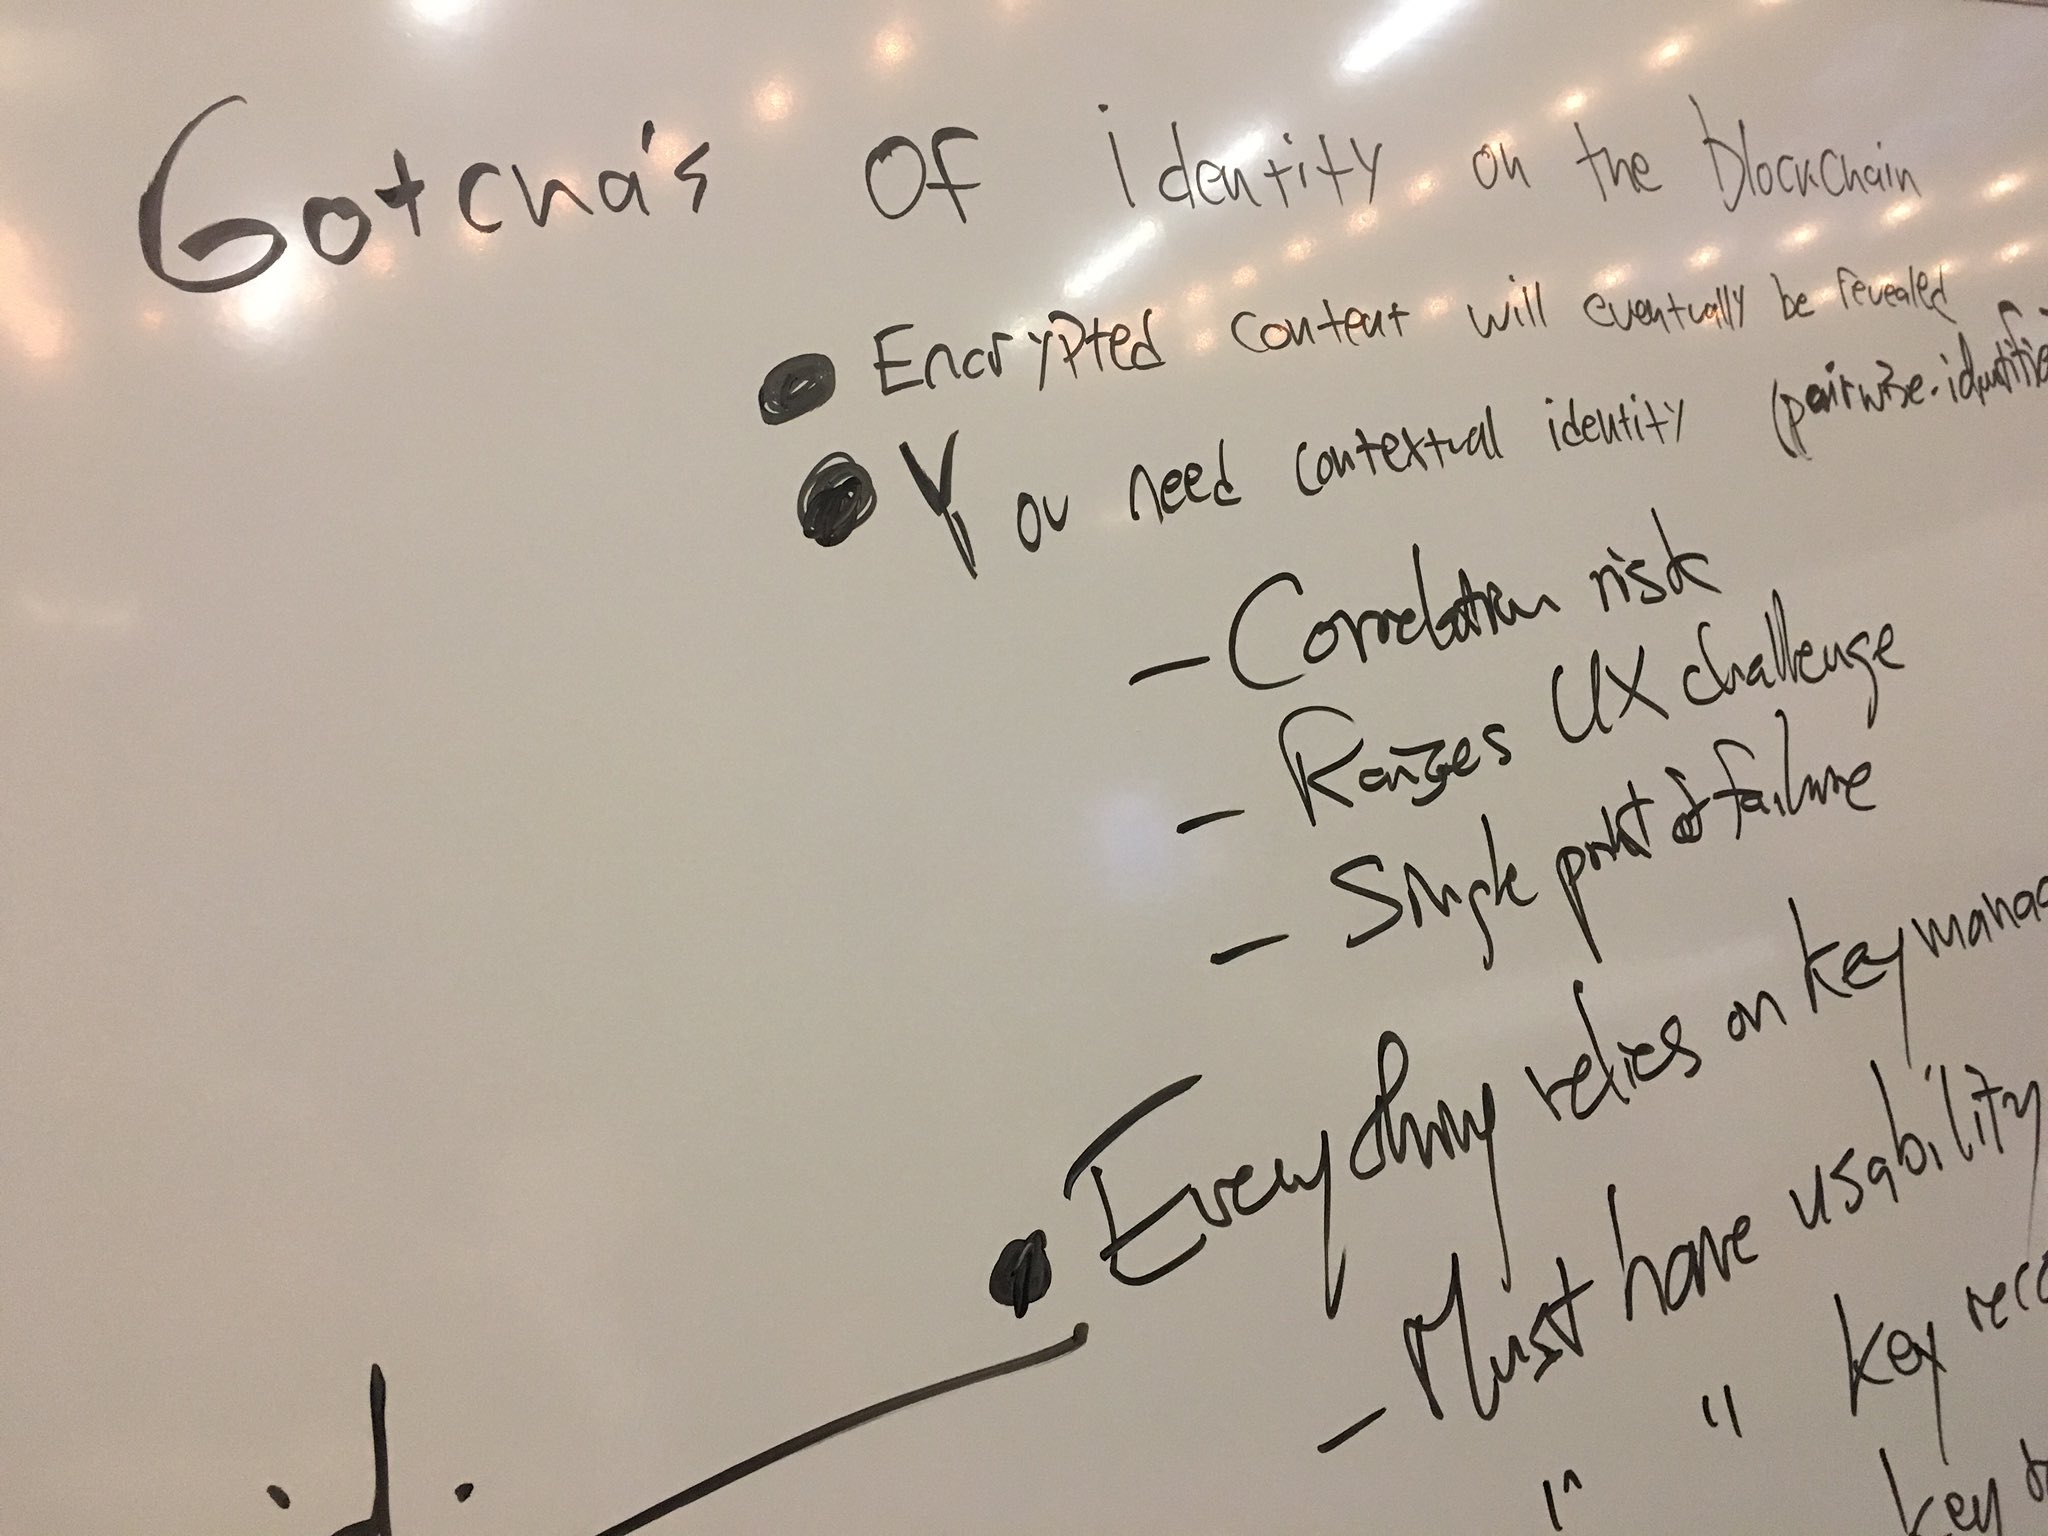 Gotcha's of identity on the blockchain
● Encrypted content will eventually be revealed
● You need contextual identity (pairwise-identifie
- Correlation risk
- Raises UX challenge
- Single point of failure
● Everything relies on key manag
- Must have usability
" key reco
" key